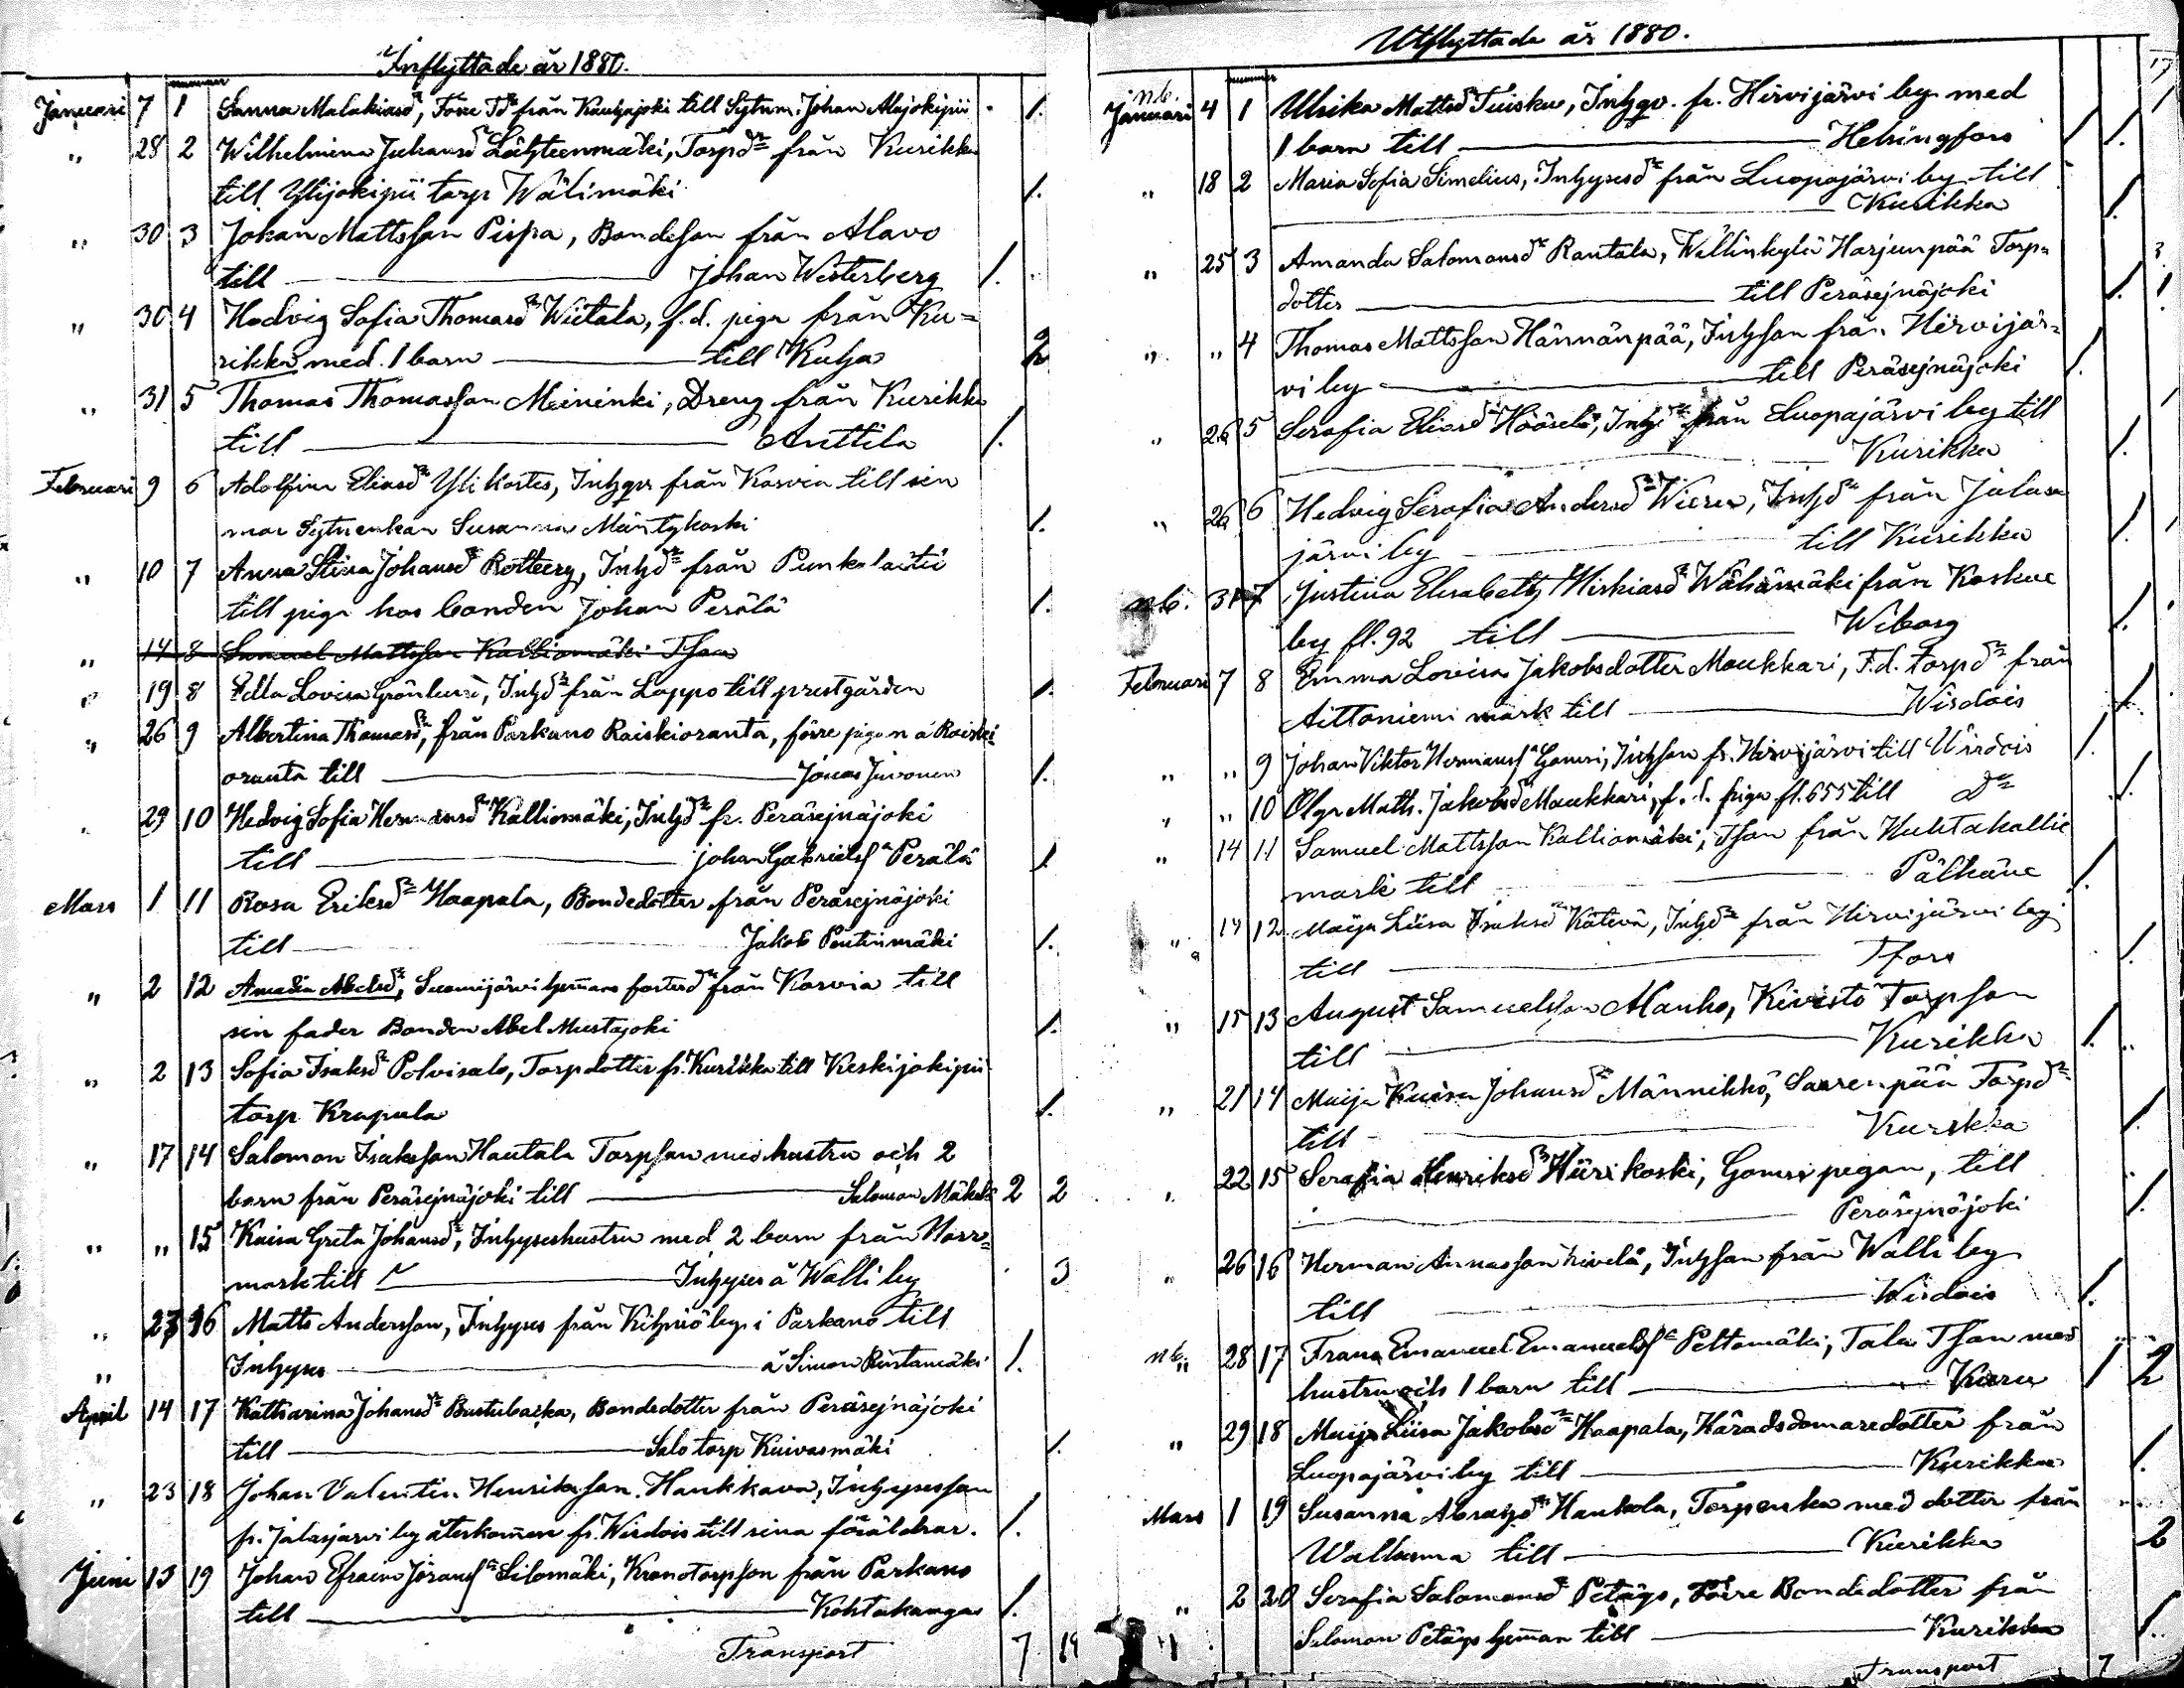 Inflyttade år 1880.
nummer
Januari 7 1 Sanna Malakiasdr, Förre Td från Kauhajoki till Sytnm. Johan Alajokipii 1.
" 28 2 Wilhelmina Juhansdr Lähteenmäki, Torpdr från Kurikka
till Ylijokipii torp Wälimäki 1.
" 30 3 Johan Mattsson Pispa, Bondeson från Alavo
till Johan Westerberg 1.
" 30 4 Hedvig Sofia Thomasdr Wiitala, f.d. piga från Ku=
rikka med 1 barn till Kuha 2
" 31 5 Thomas Thomasson Meininki, Dreng från Kurikka
till Anttila 1.
Februari 9 6 Adolfina Eliasdr Ylikortes, Inhyses från Karvia till sin
mor Sytnenkan Susanna Mäntykoski 1.
" 10 7 Anna Stina Johansdr Rotberg, Inhdr från Punkalaitio
till piga hos bonden Johan Perälä 1.
" 14 8 Samuel Mattsson Kalliomäki Tson
" 19 8 Edla Lovisa Grönlund, Inhdr från Lappo till prestgården 1.
" 26 9 Albertina Thomasdr, från Parkano Raiskioranta, förre pigan å Raiski
oranta till Jonas Juvonen 1.
29 10 Hedvig Sofia Hermansdr Kalliomäki, Inhdr fr. Peräsejnäjoki
till Johan Gabrielsson Perälä 1
Mars 1 11 Rosa Eriksdr Haapala, Bondedotter från Peräsejnäjoki
till Jakob Pentinmäki 1.
" 2 12 Amanda Abelsdr, Suomijärvi hemmans fosterdr från Karvia till
sin fader Bonden Abel Mustajoki 1.
" 2 13 Sofia Isaksdr Polvisalo, Torpdotter fr. Kurikka till Keskijokipii
torp Krapula 1.
" 17 14 Salomon Isaksson Hautala Torpson med hustru och 2
barn från Peräsejnäjoki till Salomon Mäkelä 2 2
" " 15 Kaisa Greta Johansdr, Inhyseshustru med 2 barn från Norr=
mark till Inhyses å Walli by 3
" 23 16 Matts Andersson, Inhyses från Kihniö by i Parkano till
" Inhyses å Simon Rustamäki 1.
April 14 17 Katharina Johansdr Bustubacka, Bondedotter från Peräsejnäjoki
till Salo torp Kuivasmäki 1.
" 23 18 Johan Valentin Henriksson Haukkava, Inhysesson
fr. Jalasjärvi by återkommen fr. Wirdois till sina föräldrar. 1.
Juni 13 19 Johan Efraim Göranss. Silomäki, Kronotorpson från Parkano
till Kohtakangas 1.
Transport 7 19
Utflyttade år 1880.
nummer
nb.
Januari 4 1 Ulrika Mattsdr Tuisku, Inhqv. fr. Hirvijärvi by med
1 barn till Helsingfors 1 1.
" 18 2 Maria Sofia Simelius, Inhysesdr från Luopajärvi by till
Kurikka 1.
" 25 3 Amanda Salomonsdr Rantala, Wallinkylä Harjunpää Torp=
dotter till Peräsejnäjoki 1.
" " 4 Thomas Mattsson Hännänpää, Inhson från Hirvijär=
vi by till Peräsejnäjoki 1.
" 26 5 Serafia Eliasdr Hööselä, Inhdr från Luopajärvi by till
Kurikka 1.
" 26 6 Hedvig Serafia Andersdr Wieru, Inhdr från Jalas
järvi by till Kurikka 1.
nb. 31 7 Justina Elisabeth Hiskiasdr Wähämäki från Koskue
by fl. 92 till Wiborg 1.
Februari 7 8 Emma Lovisa Jakobsdotter Maukkari, F.d. torpdr från
Aittoniemi mark till Wirdois 1.
" " 9 Johan Viktor Hermanss. Gomri, Inhson fr. Hirvijärvi till Wirdois 1.
" " 10 Olga Math. Jakobsdr Maukkari, f.d. piga fl. 655 till Do 1.
" 14 11 Samuel Mattsson Kalliomäki, Tson från Huhtakallio
mark till Pälkäne 1.
" 14 12 Maija Liisa Isaksdr Kätevä, Inhdr från Hirvijärvi by
till Tfors 1.
" 15 13 August Samuelsson Alanko, Kivistö Torpson
till Kurikka 1.
" 21 14 Maija Kaisa Johansdr Männikkö, Saarenpää Torpdr
till Kurikka 1.
" 22 15 Serafia Henriksdr Hiirikoski, Gomri pigan, till
Peräsejnäjoki 1.
" 26 16 Herman Annasson Kivelä, Inhson från Walli by
till Wirdois 1.
nb " 28 17 Frans Emanuel Emanuelss. Peltomäki, Tala Tson med
hustru och 1 barn till Kuru 1 2
" 29 18 Maija Liisa Jakobsdr Haapala, Häradsdomaredotter från
Luopajärvi by till Kurikka 1.
Mars 1 19 Susanna Abrahsdr Hankola, Torpenka med dotter från
Wallinma till Kurikka 2
" 2 20 Serafia Salomonsdr Petäys, Förre Bondedotter från
Salomon Petäys hemman till Kurikka 1.
Transport 7